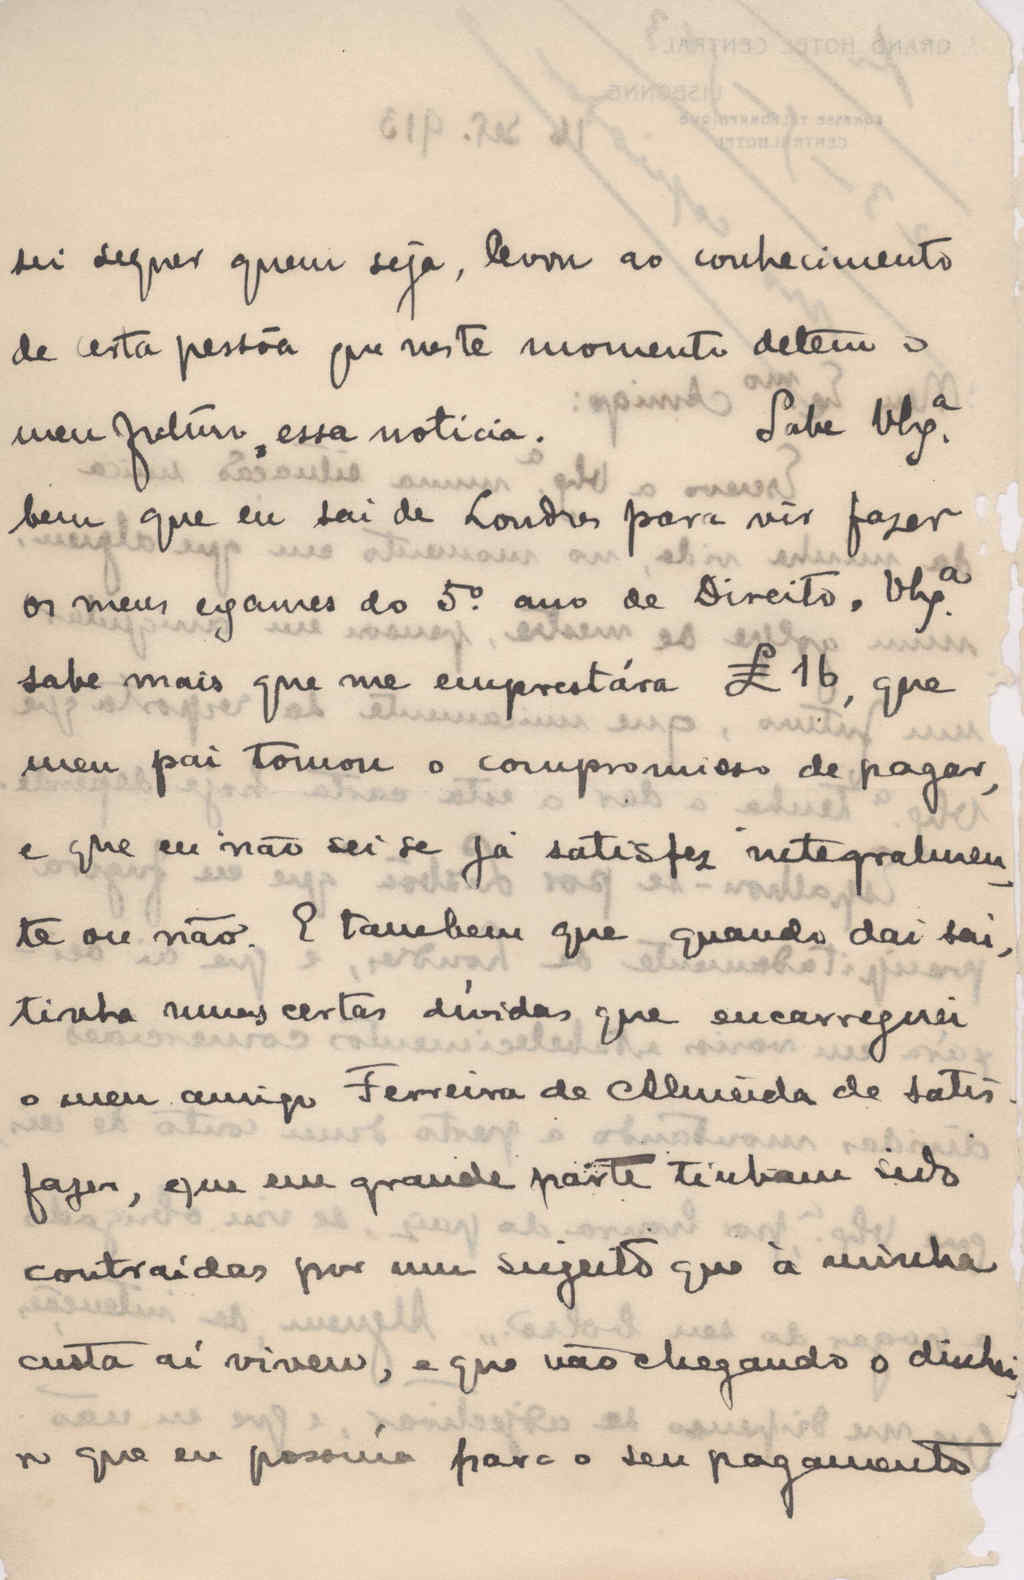 sei sequer quem seja, levou ao conhecimento
de certa pessôa que neste momento detem o
meu futuro, essa noticia. Sabe V. Ex.ª
bem que eu sai de Londres para vir fazer
os meus exames do 5º ano de Direito. V. Ex.ª
sabe mais que me emprestára £ 16, que
meu pai tomou o compromisso de pagar,
e que eu não sei se já satisfez integralmen-
te ou não. E tambem que quando dai sai,
tinha umas certas dívidas que encarreguei
o meu amigo Ferreira de Almeida de satis-
fazer, que em grande parte tinham sido
contraídas por um sujeito que à minha
custa aí viveu, e que não chegando o dinhei-
ro que eu possuía para o seu pagamento